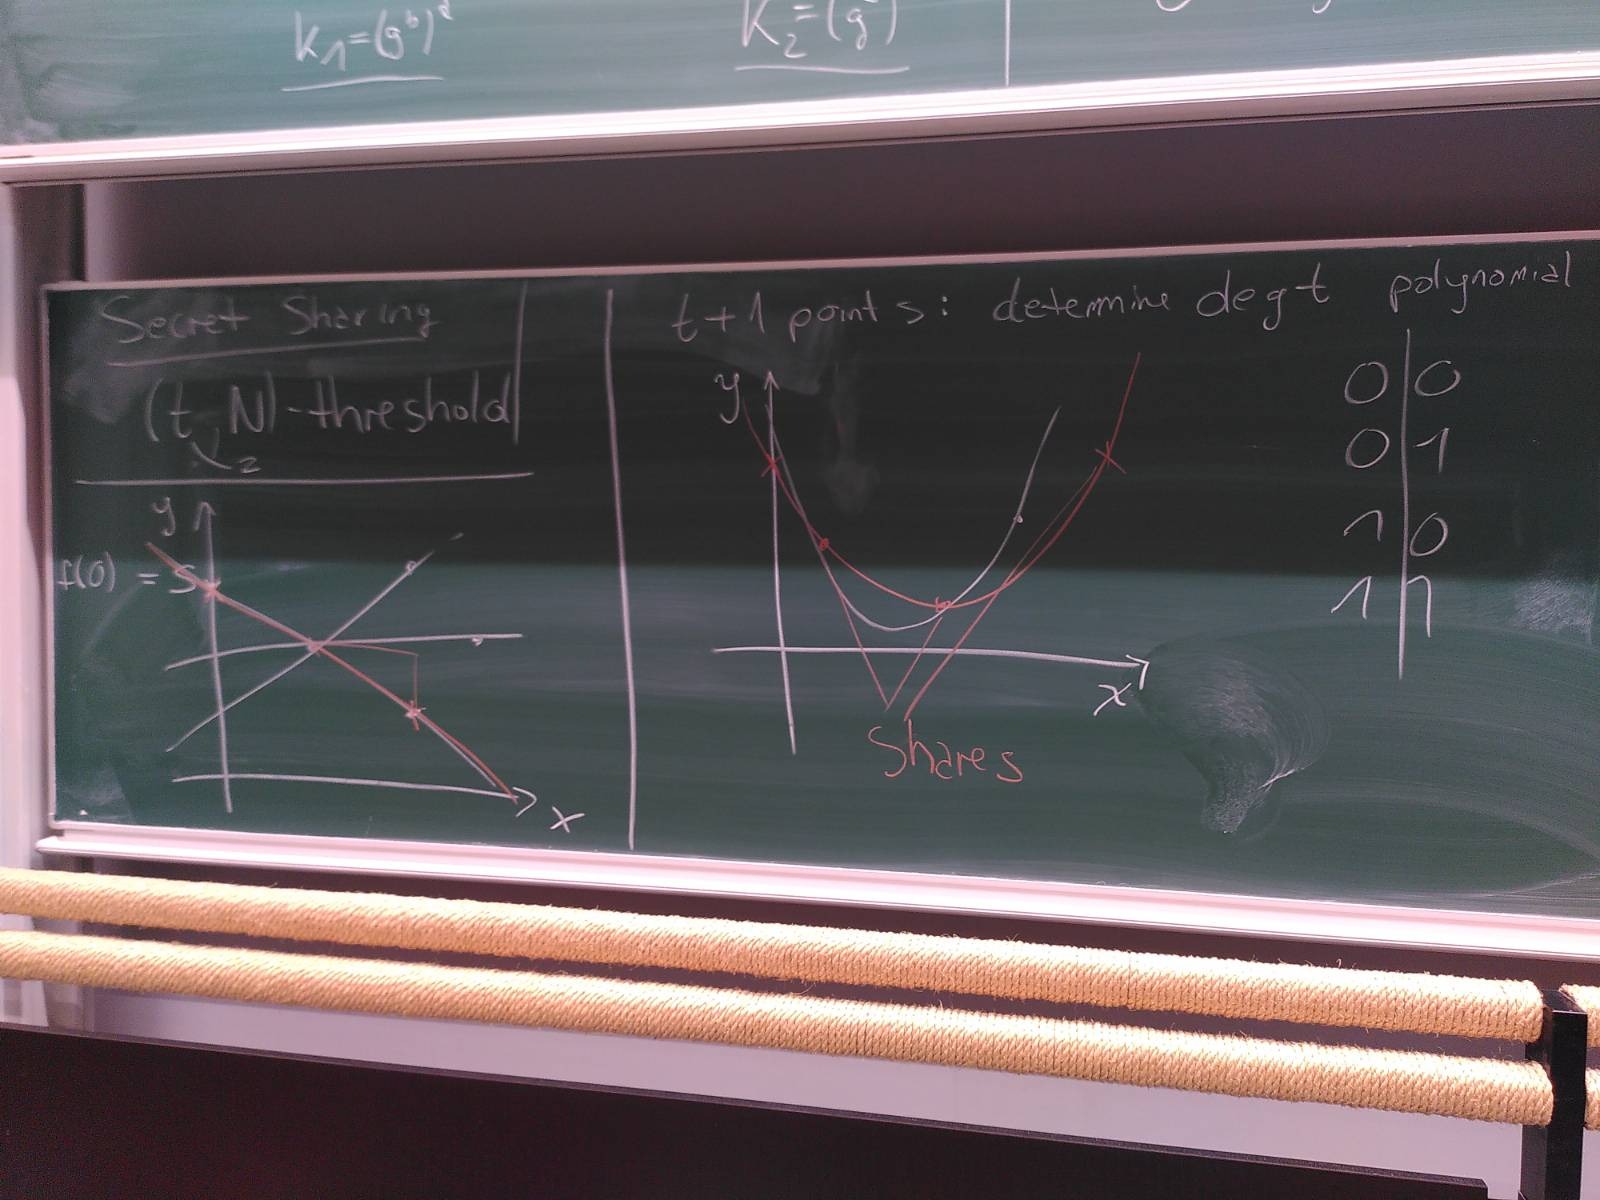 K₁=(gᵇ)ᵃ
K₂=(g
Secret Sharing
(t, N)-threshold
2
y
f(0) = S
x
t+1 points: determine deg t polynomial
y
x
Shares
0 0
0 1
1 0
1 1